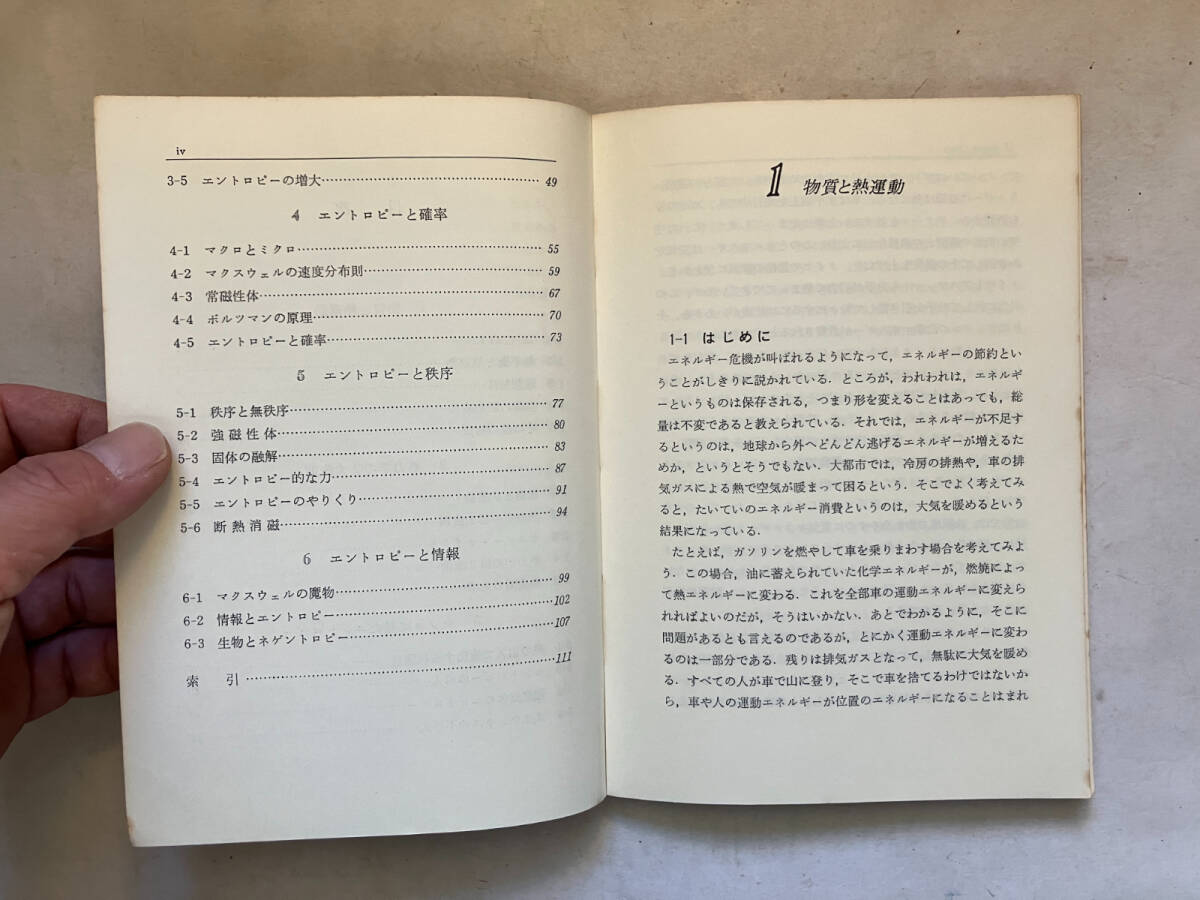 iv
3-5 エントロピーの増大……49
4 エントロピーと確率
4-1 マクロとミクロ……55
4-2 マクスウェルの速度分布則……59
4-3 常磁性体……67
4-4 ボルツマンの原理……70
4-5 エントロピーと確率……73
5 エントロピーと秩序
5-1 秩序と無秩序……77
5-2 強磁性体……80
5-3 固体の融解……83
5-4 エントロピー的な力……87
5-5 エントロピーのやりくり……91
5-6 断熱消磁……94
6 エントロピーと情報
6-1 マクスウェルの魔物……99
6-2 情報とエントロピー……102
6-3 生物とネゲントロピー……107
索引……111
1 物質と熱運動
1-1 はじめに
エネルギー危機が叫ばれるようになって，エネルギーの節約とい
うことがしきりに説かれている．ところが，われわれは，エネルギ
ーというものは保存される，つまり形を変えることはあっても，総
量は不変であると教えられている．それでは，エネルギーが不足す
るというのは，地球から外へどんどん逃げるエネルギーが増えるた
めか，というとそうでもない．大都市では，冷房の排熱や，車の排
気ガスによる熱で空気が暖まって困るという．そこでよく考えてみ
ると，たいていのエネルギー消費というのは，大気を暖めるという
結果になっている．
たとえば，ガソリンを燃やして車を乗りまわす場合を考えてみよ
う．この場合，油に蓄えられていた化学エネルギーが，燃焼によっ
て熱エネルギーに変わる．これを全部車の運動エネルギーに変えら
れればよいのだが，そうはいかない．あとでわかるように，そこに
問題があるとも言えるのであるが，とにかく運動エネルギーに変わ
るのは一部分である．残りは排気ガスとなって，無駄に大気を暖め
る．すべての人が車で山に登り，そこで車を捨てるわけではないか
ら，車や人の運動エネルギーが位置のエネルギーになることはまれ